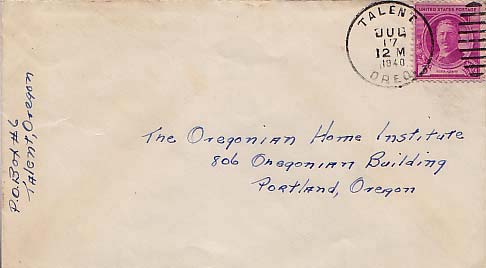 TALENT
JUL
17
12 M
1940
OREG.
UNITED STATES POSTAGE
P.O. Box #6
Talent, Oregon
The Oregonian Home Institute
806 Oregonian Building
Portland, Oregon